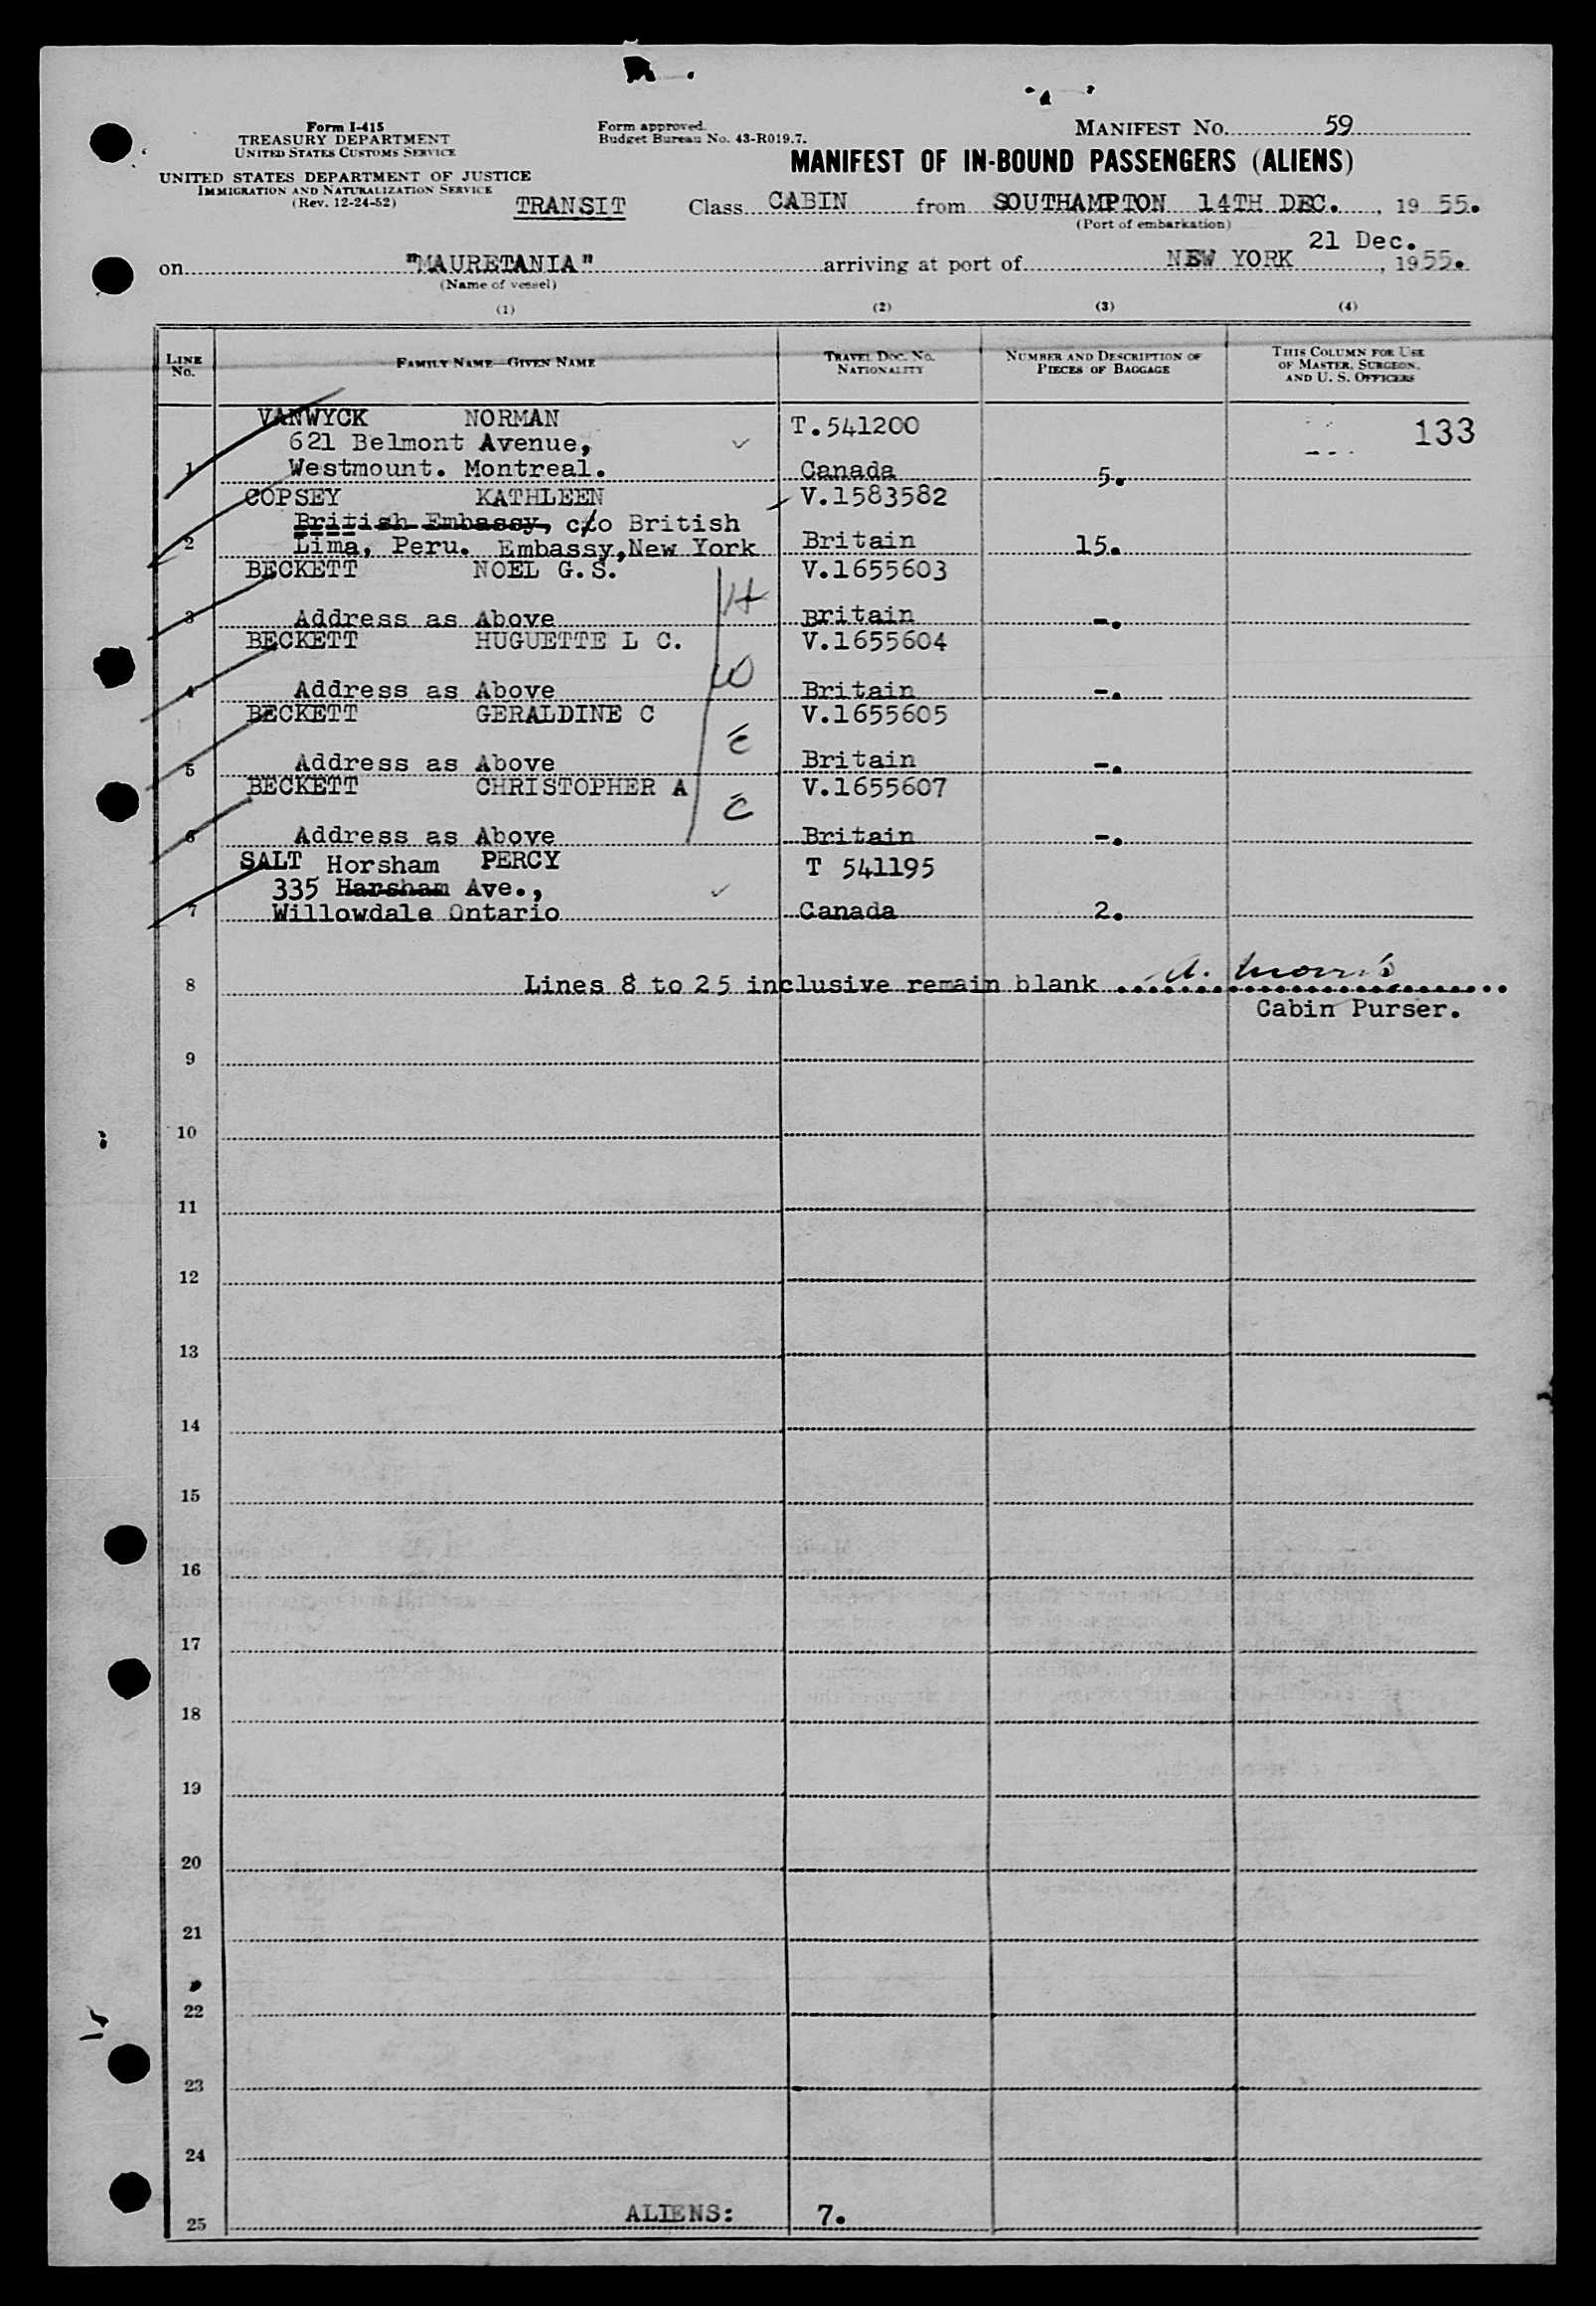 Form I-415
TREASURY DEPARTMENT
UNITED STATES CUSTOMS SERVICE
UNITED STATES DEPARTMENT OF JUSTICE
IMMIGRATION AND NATURALIZATION SERVICE
(Rev. 12-24-52)
Form approved.
Budget Bureau No. 43-R019.7.
MANIFEST NO. 59
MANIFEST OF IN-BOUND PASSENGERS (ALIENS)
TRANSIT Class CABIN from SOUTHAMPTON 14TH DEC., 19 55.
(Port of embarkation)
21 Dec.
on "MAURETANIA" arriving at port of NEW YORK, 1955.
(Name of vessel)
(1) (2) (3) (4)
LINE No. FAMILY NAME—GIVEN NAME TRAVEL DOC. NO. NATIONALITY NUMBER AND DESCRIPTION OF PIECES OF BAGGAGE THIS COLUMN FOR USE OF MASTER, SURGEON, AND U. S. OFFICERS
VANWYCK NORMAN T.541200 133
621 Belmont Avenue,
1 Westmount. Montreal. Canada 5.
COPSEY KATHLEEN V.1583582
British Embassy, c/o British
2 Lima, Peru. Embassy, New York Britain 15.
BECKETT NOEL G.S. V.1655603
H
3 Address as Above Britain -.
BECKETT HUGUETTE L C. V.1655604
W
4 Address as Above Britain -.
BECKETT GERALDINE C V.1655605
C
5 Address as Above Britain -.
BECKETT CHRISTOPHER A V.1655607
C
6 Address as Above Britain -.
SALT Horsham PERCY T 541195
335 Harsham Ave.,
7 Willowdale Ontario Canada 2.
8 Lines 8 to 25 inclusive remain blank A. Morris
Cabin Purser.
9
10
11
12
13
14
15
16
17
18
19
20
21
22
23
24
25 ALIENS: 7.